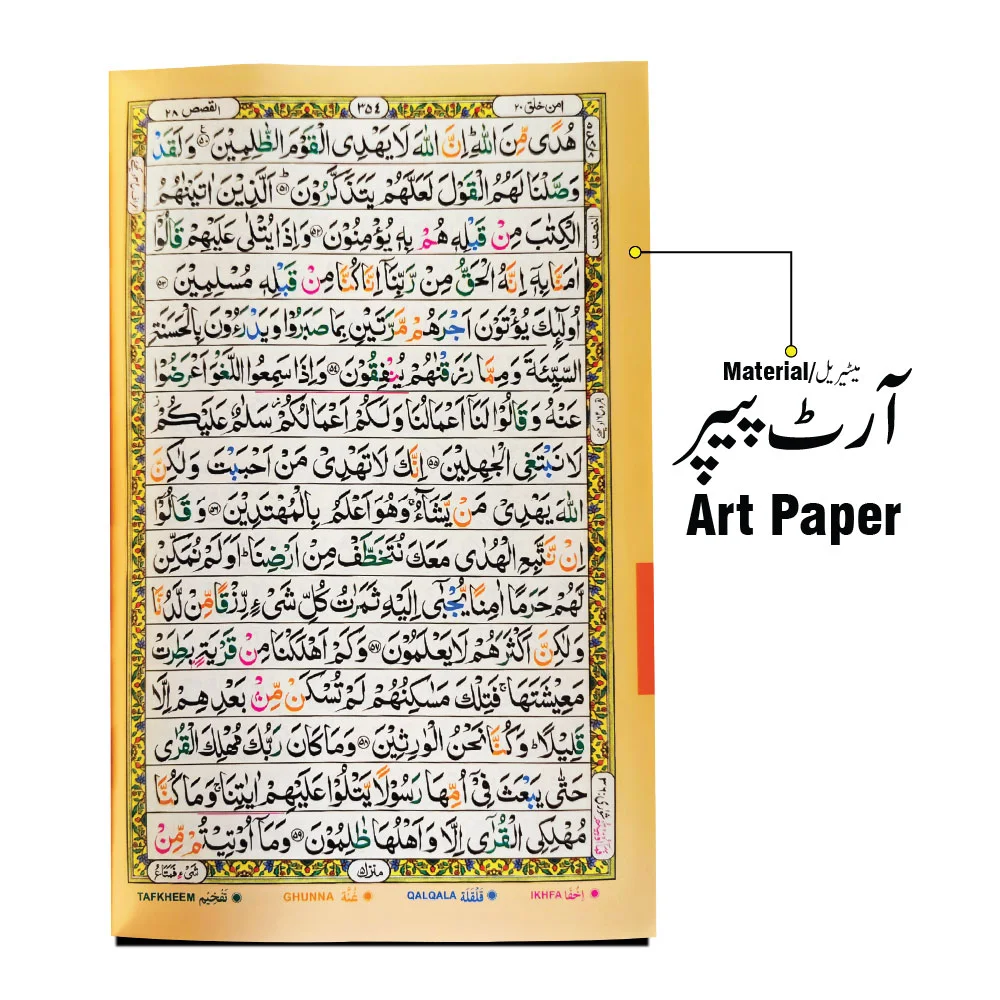 امن خلق ٢٠
٣٥٤
القصص ٢٨
هُدًى مِّنَ اللّٰهِ ؕ اِنَّ اللّٰهَ لَا يَهْدِى الْقَوْمَ الظّٰلِمِيْنَ ۵۰ وَلَقَدْ
وَصَّلْنَا لَهُمُ الْقَوْلَ لَعَلَّهُمْ يَتَذَكَّرُوْنَ ؕ ۵۱ اَلَّذِيْنَ اٰتَيْنٰهُمُ
الْكِتٰبَ مِنْ قَبْلِهٖ هُمْ بِهٖ يُؤْمِنُوْنَ ۵۲ وَاِذَا يُتْلٰى عَلَيْهِمْ قَالُوْۤا
النصف
اٰمَنَّا بِهٖۤ اِنَّهُ الْحَقُّ مِنْ رَّبِّنَاۤ اِنَّا كُنَّا مِنْ قَبْلِهٖ مُسْلِمِيْنَ ۵۳
اُولٰٓئِكَ يُؤْتَوْنَ اَجْرَهُمْ مَّرَّتَيْنِ بِمَا صَبَرُوْا وَيَدْرَءُوْنَ بِالْحَسَنَةِ
السَّيِّئَةَ وَمِمَّا رَزَقْنٰهُمْ يُنْفِقُوْنَ ۵۴ وَاِذَا سَمِعُوا اللَّغْوَ اَعْرَضُوْا
عَنْهُ وَقَالُوْا لَنَاۤ اَعْمَالُنَا وَلَكُمْ اَعْمَالُكُمْ ز سَلٰمٌ عَلَيْكُمْ ز
لَا نَبْتَغِى الْجٰهِلِيْنَ ۵۵ اِنَّكَ لَا تَهْدِىْ مَنْ اَحْبَبْتَ وَلٰكِنَّ
اللّٰهَ يَهْدِىْ مَنْ يَّشَآءُ ۚ وَهُوَ اَعْلَمُ بِالْمُهْتَدِيْنَ ۵۶ وَقَالُوْۤا
اِنْ نَّتَّبِعِ الْهُدٰى مَعَكَ نُتَخَطَّفْ مِنْ اَرْضِنَا ؕ اَوَلَمْ نُمَكِّنْ
لَّهُمْ حَرَمًا اٰمِنًا يُّجْبٰۤى اِلَيْهِ ثَمَرٰتُ كُلِّ شَىْءٍ رِّزْقًا مِّنْ لَّدُنَّا
وَلٰكِنَّ اَكْثَرَهُمْ لَا يَعْلَمُوْنَ ۵۷ وَكَمْ اَهْلَكْنَا مِنْ قَرْيَةٍۭ بَطِرَتْ
مَعِيْشَتَهَا ۚ فَتِلْكَ مَسٰكِنُهُمْ لَمْ تُسْكَنْ مِّنْۢ بَعْدِهِمْ اِلَّا
قَلِيْلًا ؕ وَكُنَّا نَحْنُ الْوٰرِثِيْنَ ۵۸ وَمَا كَانَ رَبُّكَ مُهْلِكَ الْقُرٰى
حَتّٰى يَبْعَثَ فِىْۤ اُمِّهَا رَسُوْلًا يَّتْلُوْا عَلَيْهِمْ اٰيٰتِنَا ۚ وَمَا كُنَّا
مُهْلِكِى الْقُرٰٓى اِلَّا وَاَهْلُهَا ظٰلِمُوْنَ ۵۹ وَمَاۤ اُوْتِيْتُمْ مِّنْ
منزل ۵
شَىْءٍ فَمَتَاعُ
IKHFA اِخْفَا
QALQALA قَلْقَلَة
GHUNNA غُنَّة
TAFKHEEM تَفْخِيْم
Material/میٹیریل
آرٹ پیپر
Art Paper